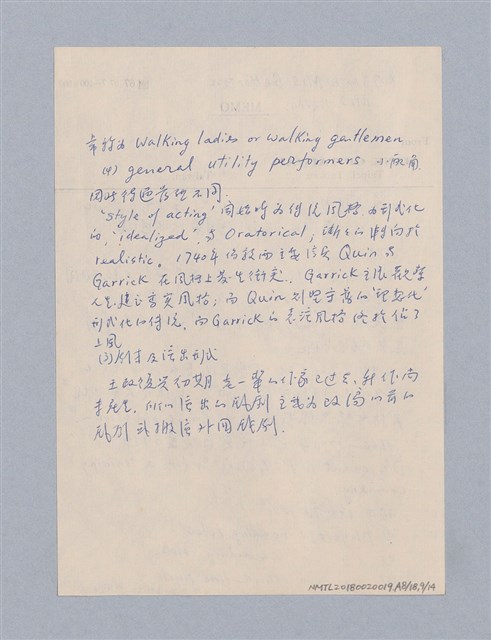 章稱為 walking ladies or walking gentlemen
(4) general utility performers 小配角
因此待遇並不同.
'style of acting' 開始時為傳統風格, 由形式化
的, 'idealized' 与 Oratorical, 漸々的對向於
realistic. 1740年代技兩主要演員 Quin 与
Garrick 在風格上發生衝突. Garrick 主張觀察
人生建立真實風格; 而 Quin 則堅守舊的 '理想化'
形式化的傳統. 而 Garrick 的表演風格終於佔了
上風
(3) 劇本及演出形式
王政復興初期 老一輩的作家已过去, 新作尚
未產生. 他們演出的戲劇主要為改篇以前的
戲劇或搬演外國戲劇.
NMTL20180020019,A8/18,9/14